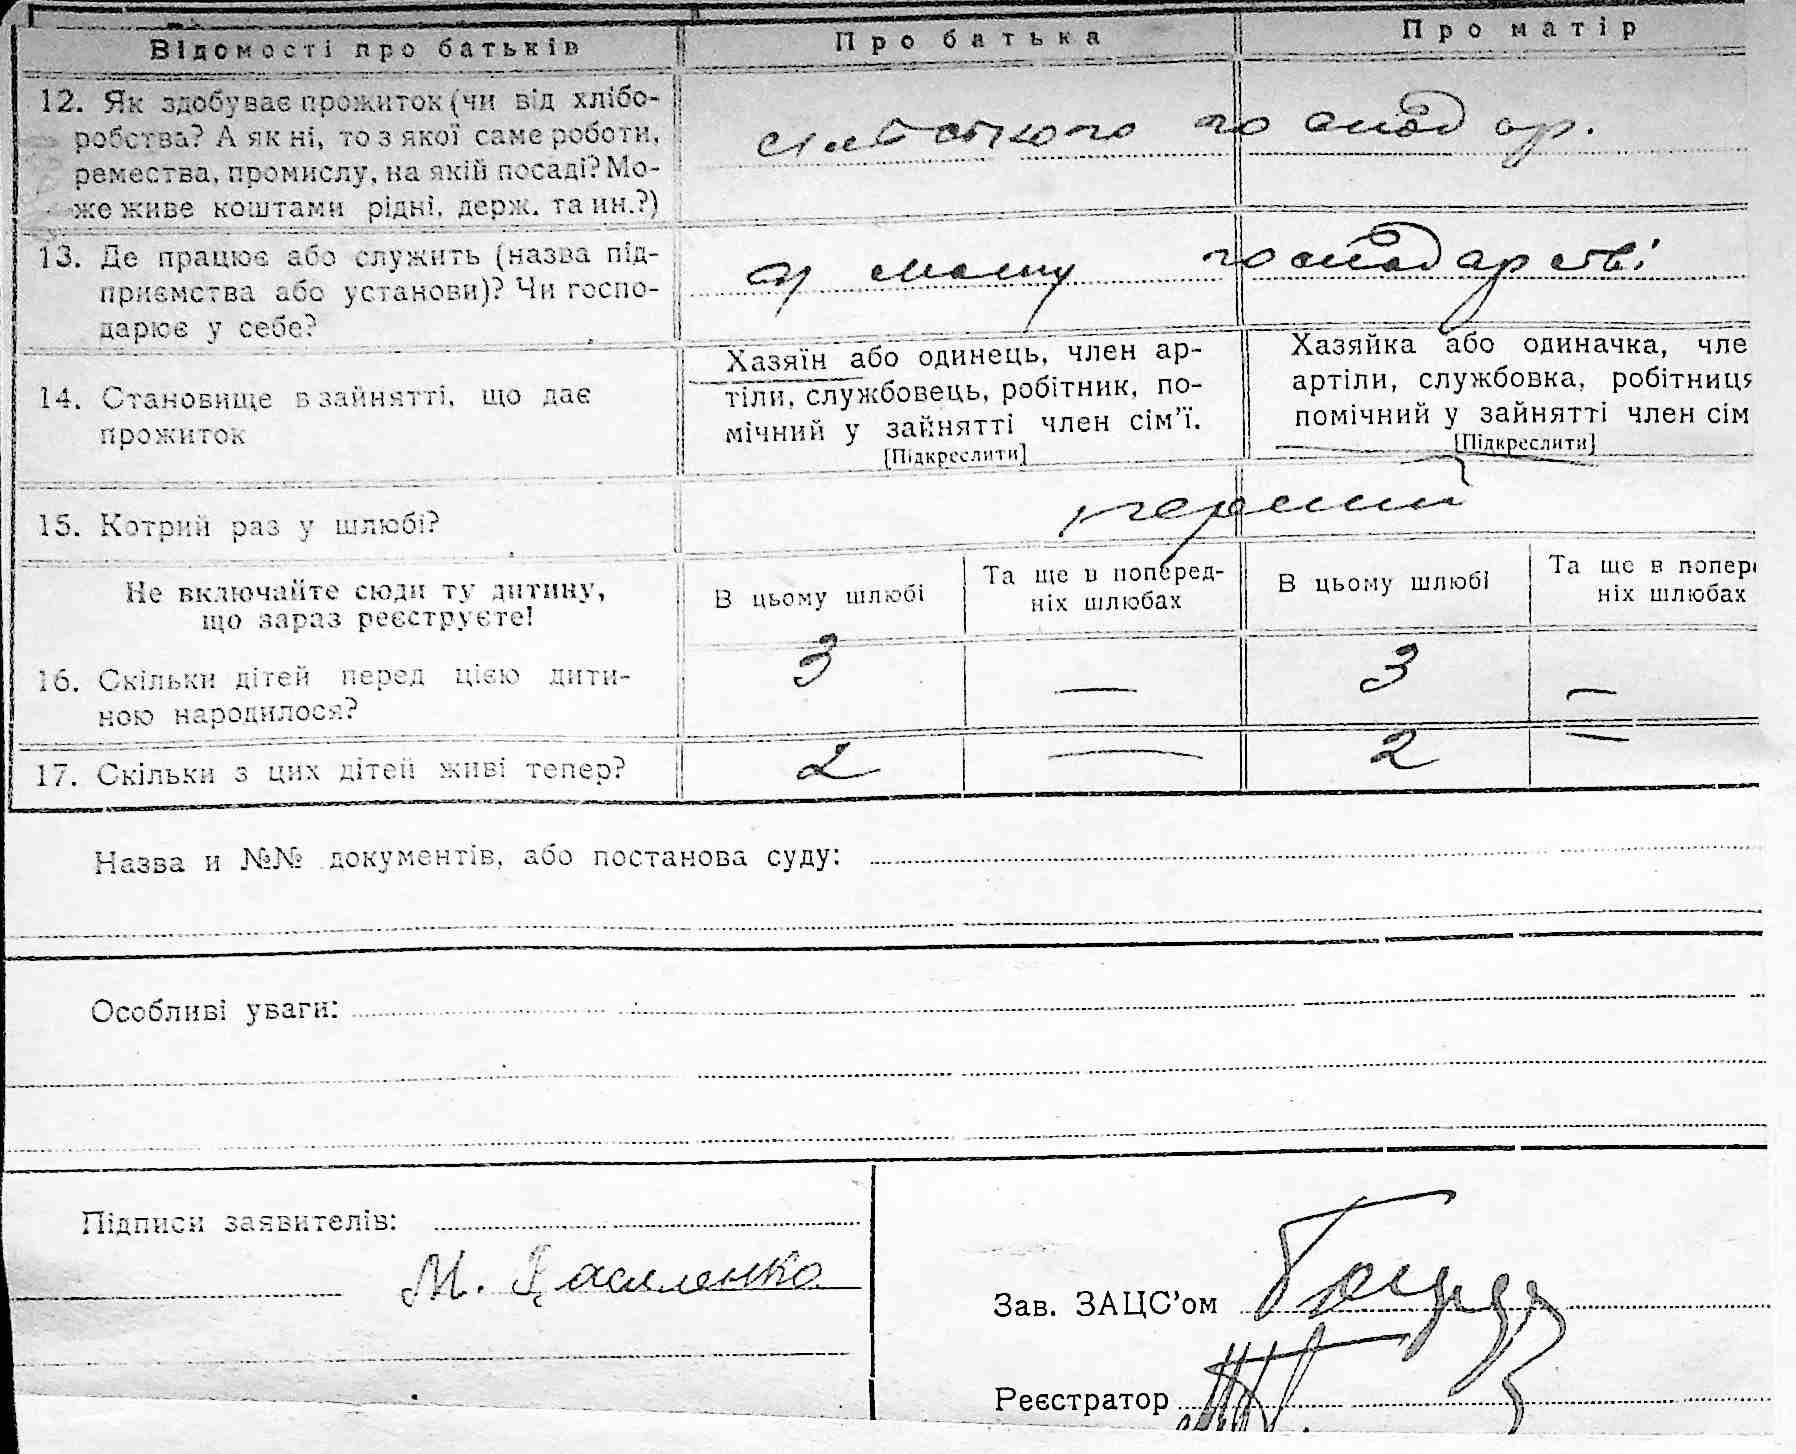 Відомості про батьків Про батька Про матір
12. Як здобуває прожиток (чи від хлібо-
робства? А як ні, то з якої саме роботи,
ремества, промислу, на якій посаді? Мо-
же живе коштами рідні, держ. та ин.?)
сільського господар.
13. Де працює або служить (назва під-
приємства або установи)? Чи госпо-
дарює у себе?
у свому господарстві
14. Становище в зайнятті, що дає
прожиток
Хазяїн або одинець, член ар-
тіли, службовець, робітник, по-
мічний у зайнятті член сім'ї.
[Підкреслити]
Хазяйка або одиначка, чле
артіли, службовка, робітниця
помічний у зайнятті член сім
[Підкреслити]
15. Котрий раз у шлюбі?
перший
Не включайте сюди ту дитину,
що зараз реєструєте!
В цьому шлюбі
Та ще в поперед-
ніх шлюбах
В цьому шлюбі
Та ще в попер
ніх шлюбах
16. Скільки дітей перед цією дити-
ною народилося?
3 — 3 —
17. Скільки з цих дітей живі тепер? 2 — 2 —
Назва и №№ документів, або постанова суду:
Особливі уваги:
Підписи заявителів:
М.
Зав. ЗАЦС'ом
Реєстратор